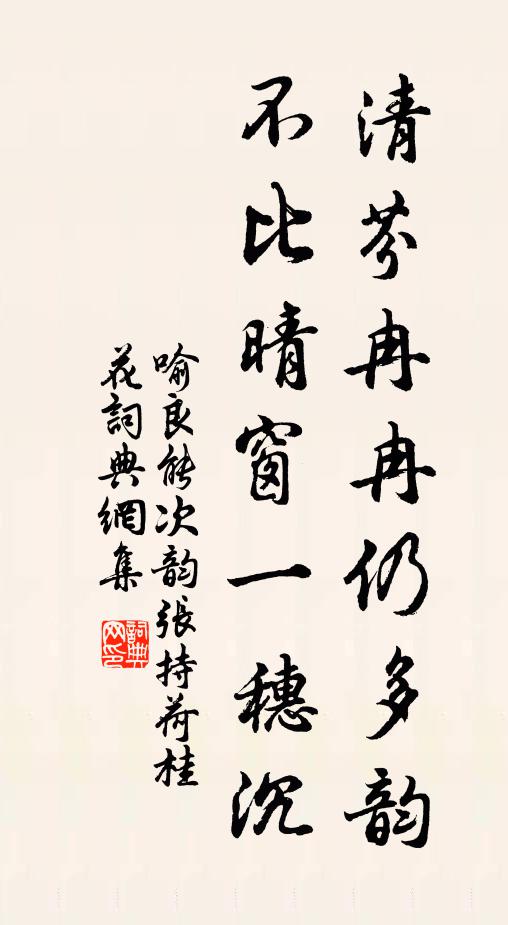 清芬冉冉仍多韵
不比晴窗一穗沉
喻良能次韵张持荷桂
花詞典網集
詞典
网印